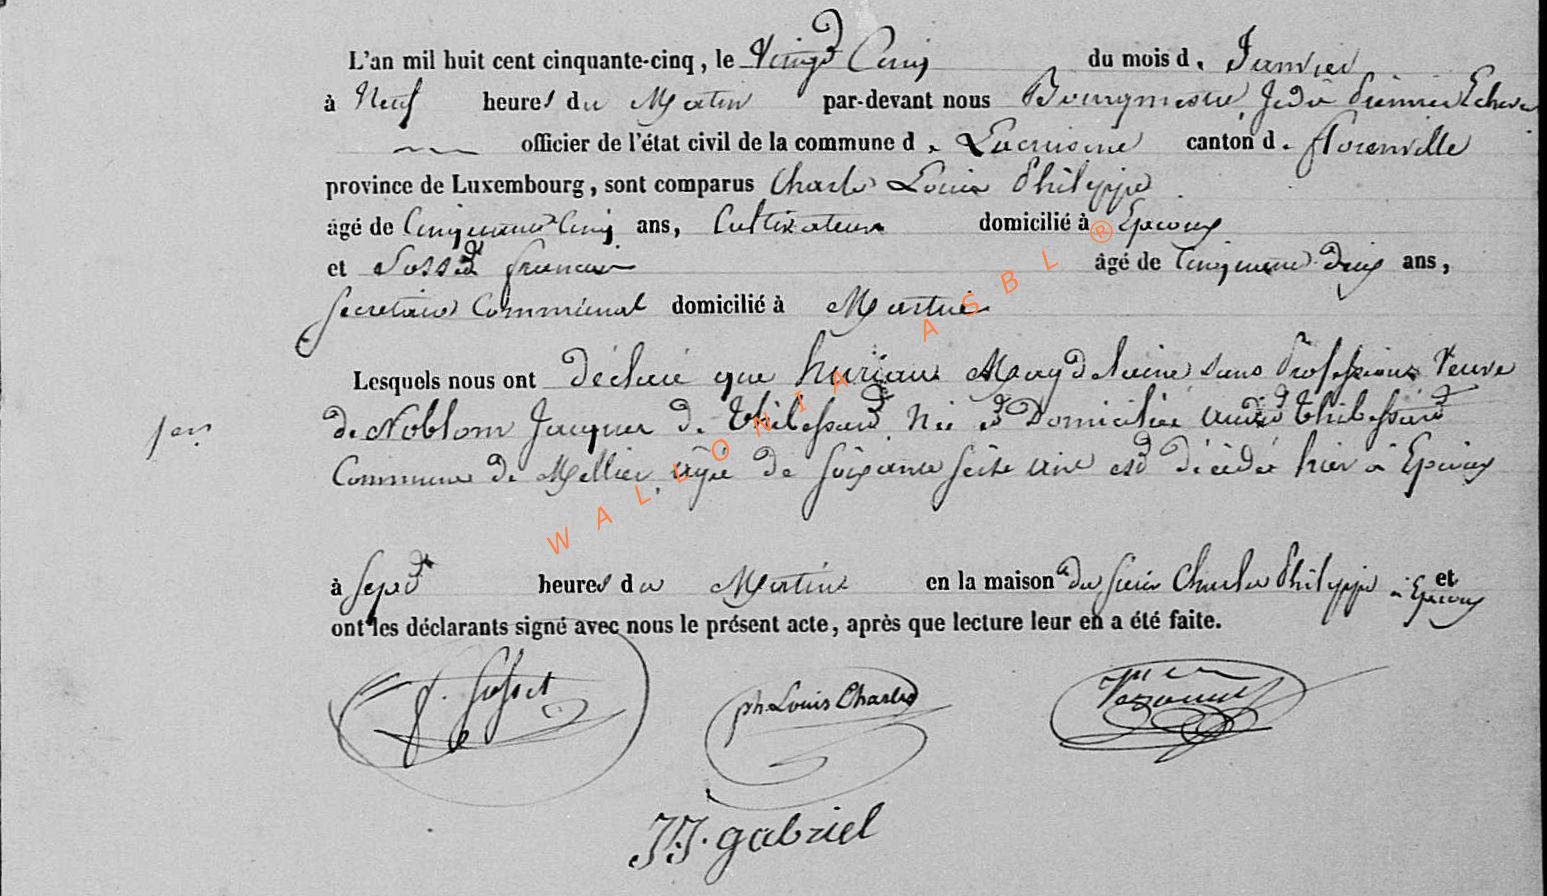 L'an mil huit cent cinquante-cinq, le Vingt Cinq du mois d. Janvier
à Neuf heures du Matin par-devant nous Bourgmestre, Premier Echevin
officier de l'état civil de la commune d. Lacuisine canton d. florenville
province de Luxembourg, sont comparus Charles Louis Philippe
âgé de Cinquante Cinq ans, Cultivateur domicilié à Epioux
et Sosset francois âgé de Cinquante deux ans,
Secretaire Communal domicilié à Martué
Lesquels nous ont déclaré que huriaux Magdeleine sans Profession Veuve
de Noblom Jacques de thibessard Née et Domiciliée audit thibessard
Commune de Mellier, agée de soixante seize ans est décédée hier à Epioux
à Sept heures du Matin en la maison du sieur Charles Philippe à Epioux et
ont les déclarants signé avec nous le présent acte, après que lecture leur en a été faite.
f. Sosset ph. Louis Charles
J.J. gabriel
WALLONIA ASBL ®